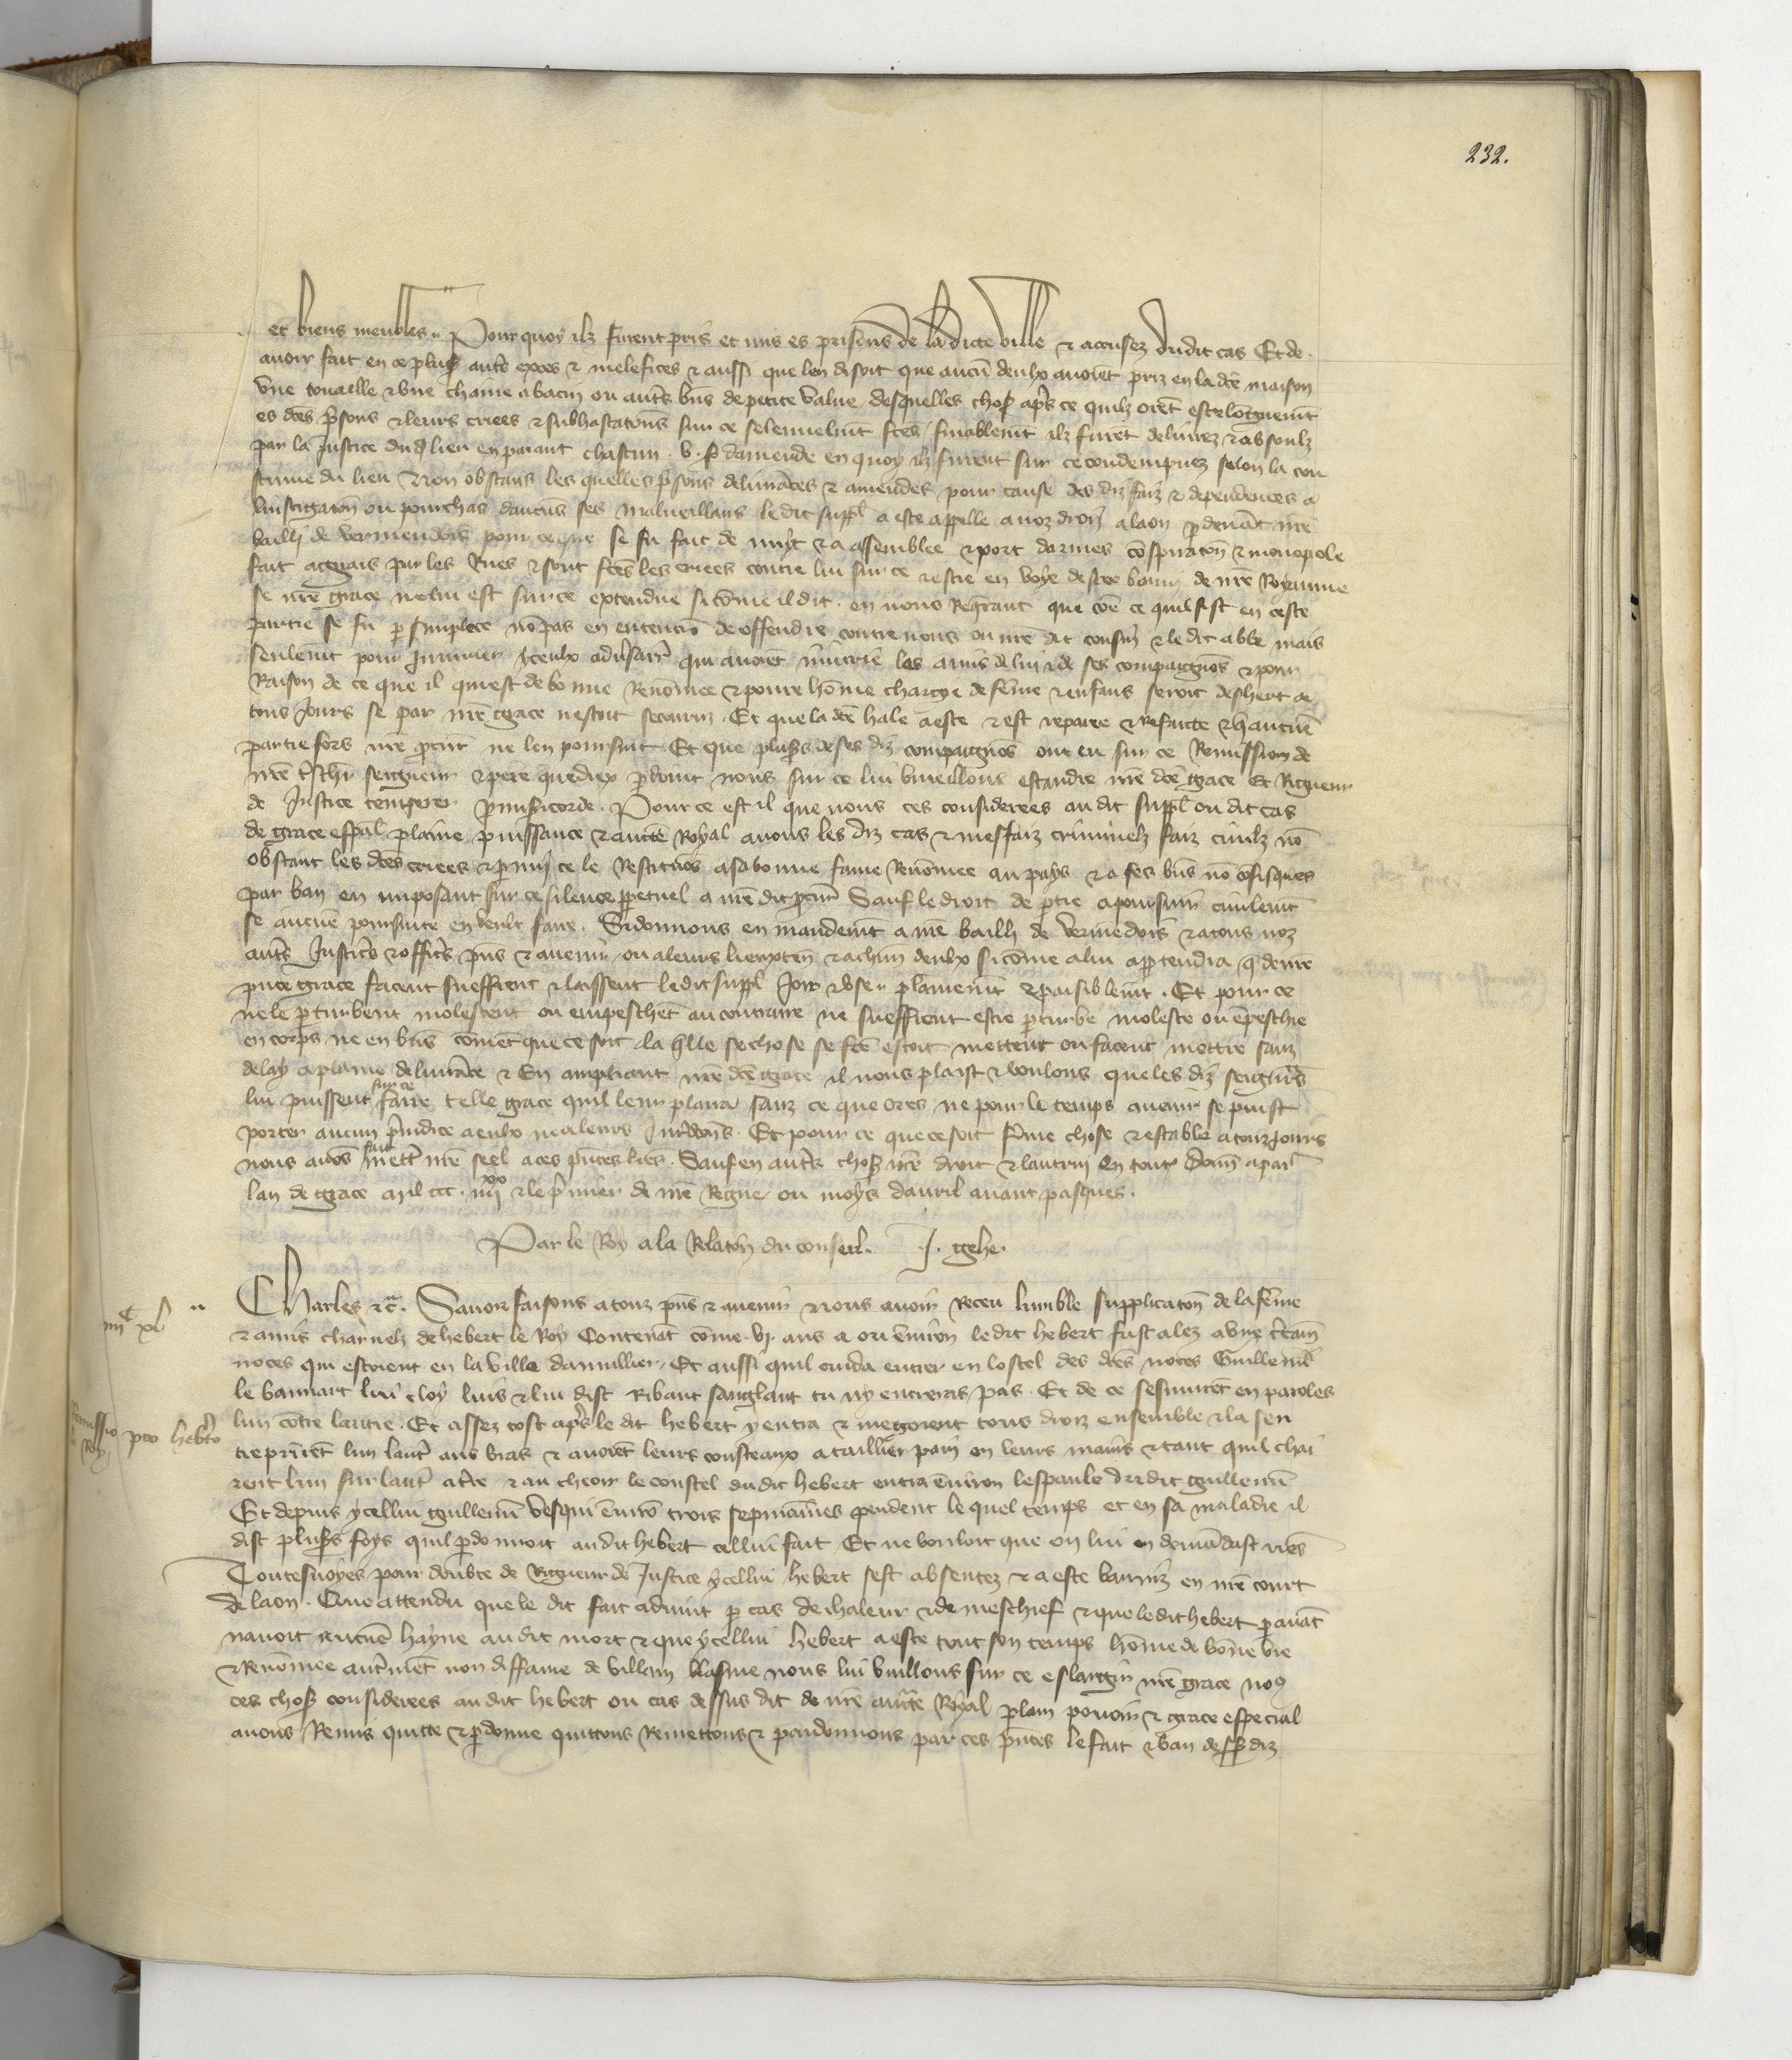 232.
et biens meubles. Pour quoy ilz furent pris et mis es prisons de ladicte ville & accusez dudit cas Et de
avoir fait en ce plus autr exces & malefices & aussi que len disoit que aucū deulx avoiēt priz en la dcē maison
une touaille & une chaine a bacin ou autrs bns de petite value desquelles chos aprs ce quilz orēt este longuemt
es dces prisons & leurs criees & subhastatons sur ce solennelmt fces finablemt ilz furēt delivrez & absoulz
par la Justice dud lieu en paiant chascun .v. s damende en quoy ilz furent sur ce condempnez selon la cou
stume du lieu Non obstans les quelles prisons delivrāces & amendes pour cause des diz faiz & dependences a
linstigaton ou pourchas daucūs ses malveillans le dit suppl a este appelle a noz droiz a laon p devāt nrē
bailli de vermendois pour ce que se fu fait de nuyt & a assemblee & port darmes cōspiraton & monopole
fait & sont fces les criees contre lui sur ce & estre en voye destre banni de nrē Royaume
se nrē grace ne lui est sur ce extendue si cōme il dit en nous Reqrant que cōe ce quil fist en ceste
partie se fu p simplece nō pas en entenciō de offendre contre nous ou nrē dit & le dit abbe mais
seulemt pour Injurier yceulx adversairs qui avoiēt les amis de lui & de ses compaignōs & pour
Raison de ce que il qui est de bonne Renōmee & poure hōme chargie de fēme & enfans seroit deshert a
tous Jours se par nrē grace nestoit secouruz. Et que la dcē hale a este & est reparee & refaicte & q aucune
partie fors nrē pcur ne len poursuit Et que plusrs de ses diz compaignōs ont eu sur ce Remission de
nrē trschr seigneur & pere que diex pdoint nous sur ce lui vueillons estandre nrē dcē grace Et Rigueur
de Justice temperer p misericorde. Pour ce est il que nous ces considerees au dit suppl ou dit cas
de grace espal plaine puissance & aucte Royal avons les diz cas & meffaiz criminelz faiz civilz nō
obstant les dces criees & p mi ce le Restituōs a sa bonne fame Renōmee au pays & a ses bns nō cōfisques
par ban en imposant sur ce silence ppetuel a nrē dit pcur Sauf le droit de ptie a poursuir civilemt
se aucune poursuite en veult faire. Si donnons en mandemt a nrē bailli de vermēdois & a tous noz
autrs Justicrs & officrs pns & avenir ou a leurs lieuxten & a chun deulx si cōme a lui aptendra q de nrē
pnte grace facent sueffrent & laissent le dit suppl Joir & user plainemt & paisiblemt. Et pour ce
ne le pturbent molestent ou empeschēt au contraire ne sueffrent estre pturbe moleste ou ēpeschie
en corps ne en bns cōmēt que ce soit la qlle se chose se fce estoit mettent ou facent mettre sanz
delay a plaine delivrāce & En ampliant nrē dcē grace il nous plaist & voulons que les diz seignrs
lui puissent sur ce faire telle grace quil leur plaira sanz ce que ores ne pour le temps avenir se puist
porter aucun prejudice a eulx ne a leurs Jurdicions. Et pour ce que ce soit ferme chose & estable a touz jours
nous avōs fait mettr nrē seel a ces pntes lres. Sauf en autrs chos nrē droit & lautrui en toutes. Dōn a par
lan de grace mil ccc iiii xx & le prmier de nrē Regne ou moys davril avant pasques.
Par le Roy a la Relaton du conseil. J. gehe.
iiii c xl
Charles &c. Savoir faisons a touz pns & avenir Nous avoir Receu lumble supplicaton de la fēme
& amis charnelz de hebert le Roy Contenāt cōme .vi. ans a ou ēviron le dit hebert fust alez a unes crtaines
noces qui estoient en la ville damillier Et aussi quil cuida entrer en lostel des dces noces Guillemī
le bannart luis & lui dist Ribaut sanglant tu ny entreras pas. Et de ce sesmurēt en paroles
Remissio pro heberto le Roy
lun cōtre lautre. Et assez tost aprs le dit hebert y entra & mēgoient tous droiz ensemble & la sen
treprīrēt lun lautr aus bras & avoiēt leurs cousteaux a taillier pain en leurs mains & tant quil chai
rent lun sur lautr a terre & au cheoir le coustel du dit hebert entra ēviron lespaule du dit guillemī
Et depuis ycellui guillemī vesqui ēvirō trois sepmaines pendent le quel temps et en sa maladie il
dist plusrs foys quil pdonnoit au dit hebert cellui fait Et ne vouloit que on lui en demādast riēs
Toutesvoyes pour doubte de Rigueur de Justice ycellui hebert sest absentez & a este banniz en nrē court
de laon. Que attendu que le dit fait advint p cas de chaleur & de meschief & que le dit hebert p avāt
navoit aucune hayne au dit mort & que ycellui hebert a este tout son temps hōme de bōne vie
& Renōmee autrmēt non diffame de villain blasme nous lui vueillons sur ce eslargir nrē grace no9
ces chos considerees au dit hebert ou cas dessus dit de nrē aucte Royal plain povoir & grace especial
avons Remis quitte & pdonne quittons Remettons & pardonnons par ces pntes le fait & ban dess diz